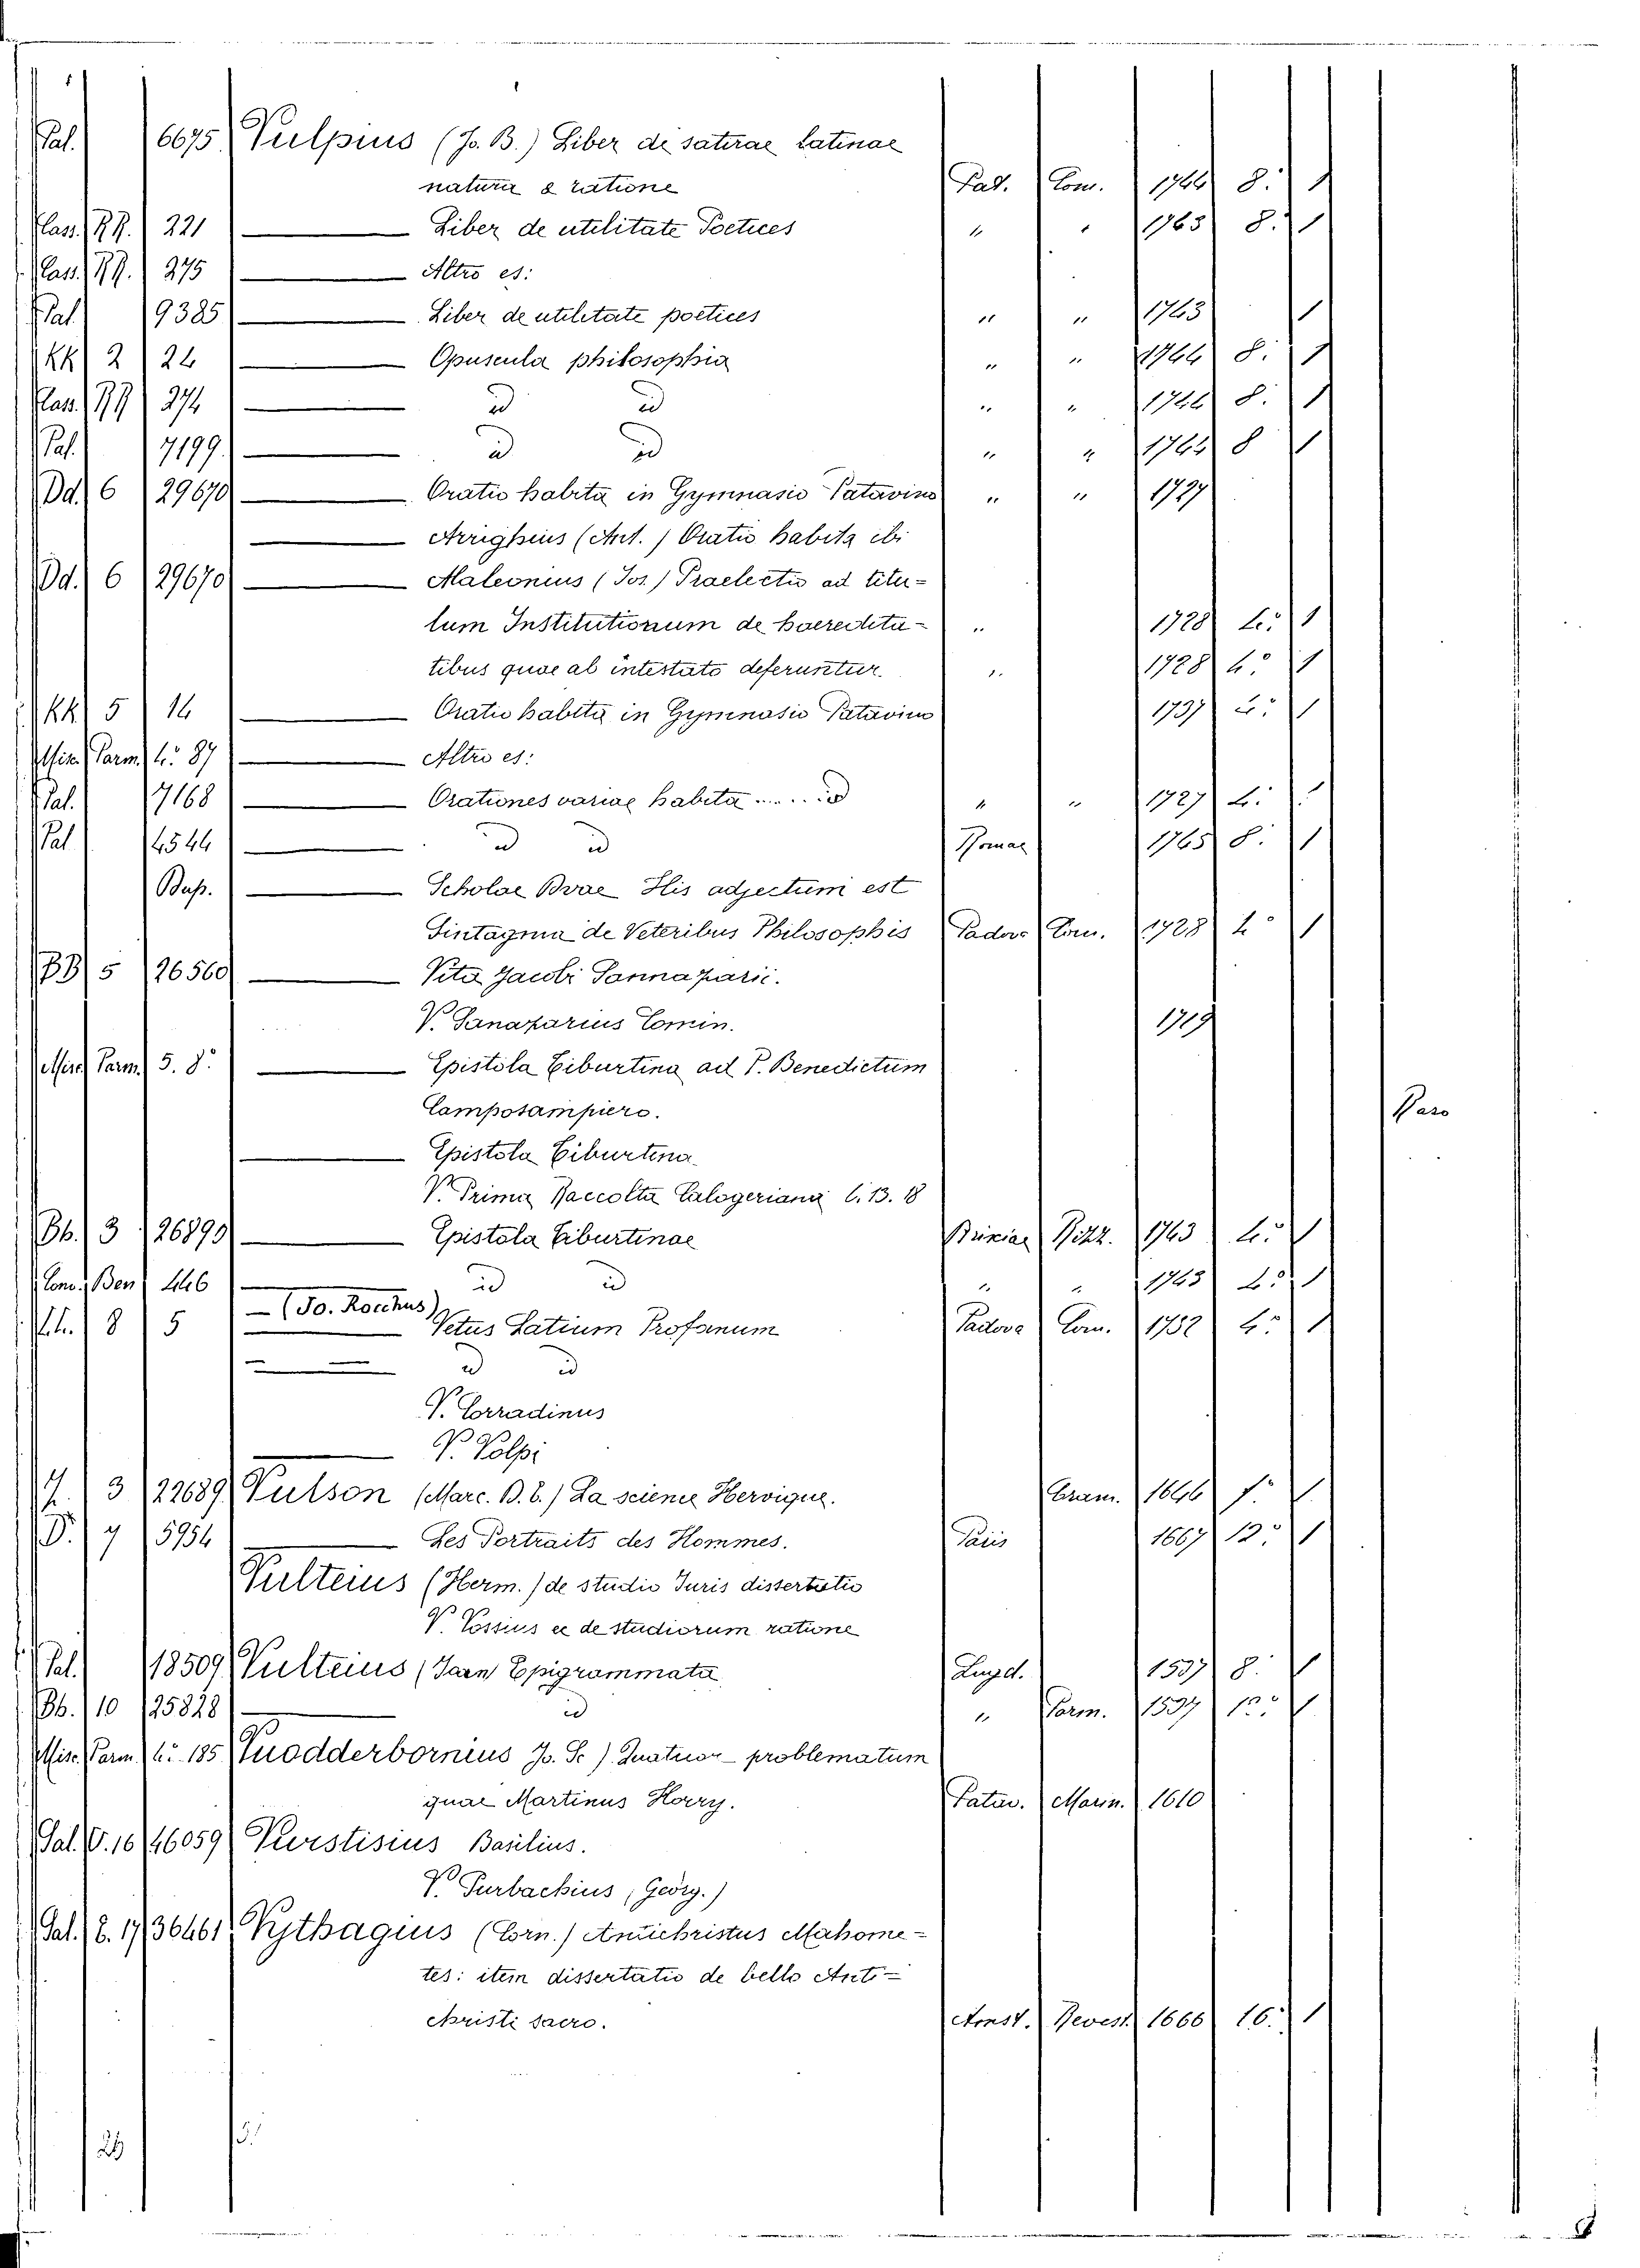 Pal. 6675 Vulpius (Jo. B.) Liber de satirae latinae
natura & ratione Pat. Com. 1744 8. 1
Class. RR. 221 Liber de utilitate Poetices " " 1743 8. 1
Class. RR. 275 Altro es:
Pal. 9385 Liber de utilitate poetices " " 1743 1
KK 2 24 Opuscula philosophica " " 1744 8. 1
Class. RR 274 id id " " 1744 8. 1
Pal. 7199. id id " " 1744 8 1
Dd. 6 29670 Oratio habita in Gymnasio Patavino " " 1727
Arrighius (Ant.) Oratio habita ibi
Dd. 6 29670 Maleonius (Jos.) Praelectio ad titu-
lum Institutionum de haeredita- " 1728 4.° 1
tibus quae ab intestato deferuntur. " 1728 4.° 1
KK 5 14 Oratio habita in Gymnasio Patavino 1737 4.° 1
Misc. Parm. 4.° 87 Altro es:
Pal. 7168 Orationes variae habita ..... id " " 1727 4.
Pal. 4544 id id Romae 1765 8. 1
Bup. Scholae Bvae His adjectum est
Sintagma de Veteribus Philosophis Padova Com. 1728 4° 1
BB 5 26560 Vita Jacobi Sannazarii.
V. Sanazarius Comin. 1719
Misc. Parm. 5. 8.° Epistola Tiburtina ad P. Benedictum
Camposampiero.
Raro
Epistola Tiburtina
V. Prima Raccolta Calogeriana t. 13. 18
Bb. 3 26899 Epistola Tiburtinae Brixiae Rizz. 1743 4.° 1
Cono. Ben 446 id id " " 1743 4.° 1
8 5 — (Jo. Rocchus) Vetus Latium Profanum Padova Com. 1732 4.° 1
id id
V. Corradinus
V. Volpi
3 22689 Vulson (Marc. B. d.) La science Heroique. Cram. 1646 f. 1
7 5954 Les Portraits des Hommes. Paris 1667 12.° 1
Vulteius (Herm.) de studio Juris dissertatio
V. Vossius et de studiorum ratione
Pal. 18509 Vulteius (Joan Epigrammata Lugd. 1537 8. 1
Bb. 10 25828 id " Parm. 1537 12.° 1
Misc. Parm. 4.° 185 Vuodderbornius Jo. Sc.) Quatuor problematum
quae Martinus Horry. Patav. Marin. 1610
Pal. V. 16 46059 Vurstisius Basilius.
V. Purbachius (Georg.)
Pal. E. 17 36461 Vythagius (Corn.) Antichristus Mahome-
tes: item dissertatio de bello Anti-
christi sacro. Amst. Revest. 1666 16. 1
24 5.